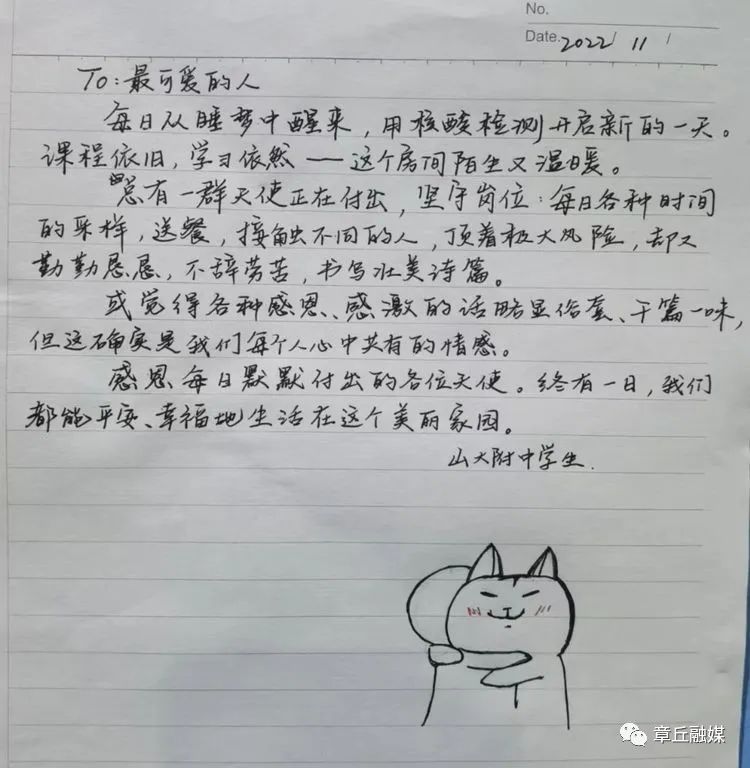 No.
Date. 2022 / 11 /
To:最可爱的人
每日从睡梦中醒来，用核酸检测开启新的一天。
课程依旧，学习依然——这个房间陌生又温暖。
总有一群天使正在付出，坚守岗位：每日各种时间
的采样，送餐，接触不同的人，顶着极大风险，却又
勤勤恳恳，不辞劳苦，书写壮美诗篇。
或觉得各种感恩、感激的话略显俗套、千篇一味，
但这确实是我们每个人心中共有的情感。
感恩每日默默付出的各位天使。终有一日，我们
都能平安、幸福地生活在这个美丽家园。
山大附中学生.
章丘融媒